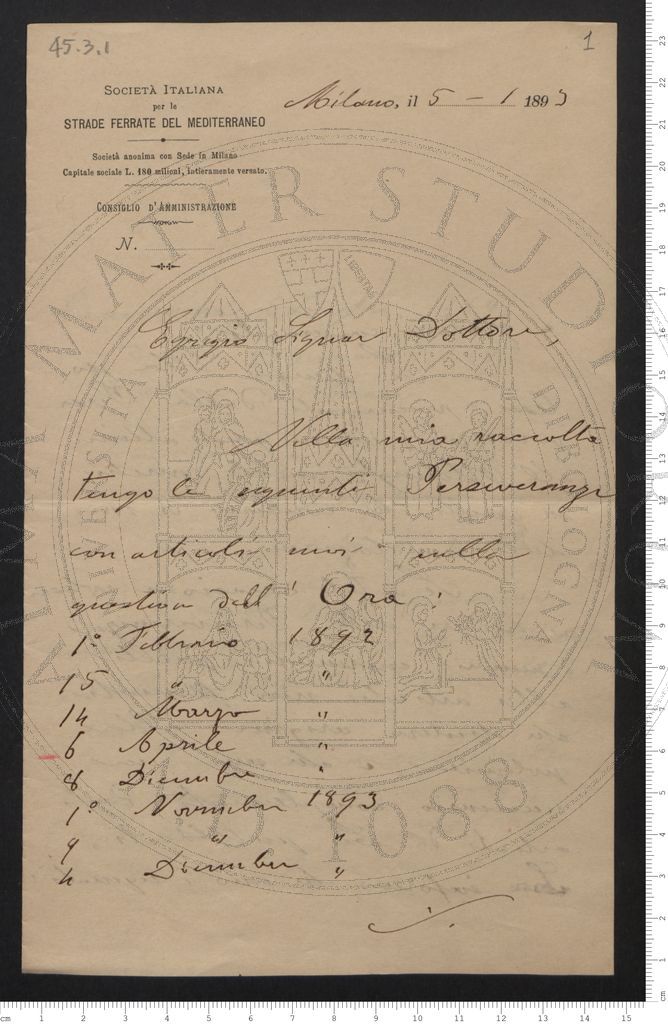 45.3.1
1
SOCIETÀ ITALIANA
per le
STRADE FERRATE DEL MEDITERRANEO
Società anonima con Sede in Milano
Capitale sociale L. 180 milioni, intieramente versato.
CONSIGLIO D'AMMINISTRAZIONE
N.
Milano, il 5 - 1 1893
Egregio Signor Dottore,
Nella mia raccolta
tengo le seguenti Perseveranze
con articoli miei sulla
question dell' Ora:
1° Febbraio 1892
15 " "
14 Marzo "
6 Aprile "
8 Dicembre "
1° Novembre 1893
9 " "
4 Dicembre "
ALMA MATER STUDIORUM
UNIVERSITÀ DI BOLOGNA
A.D. 1088